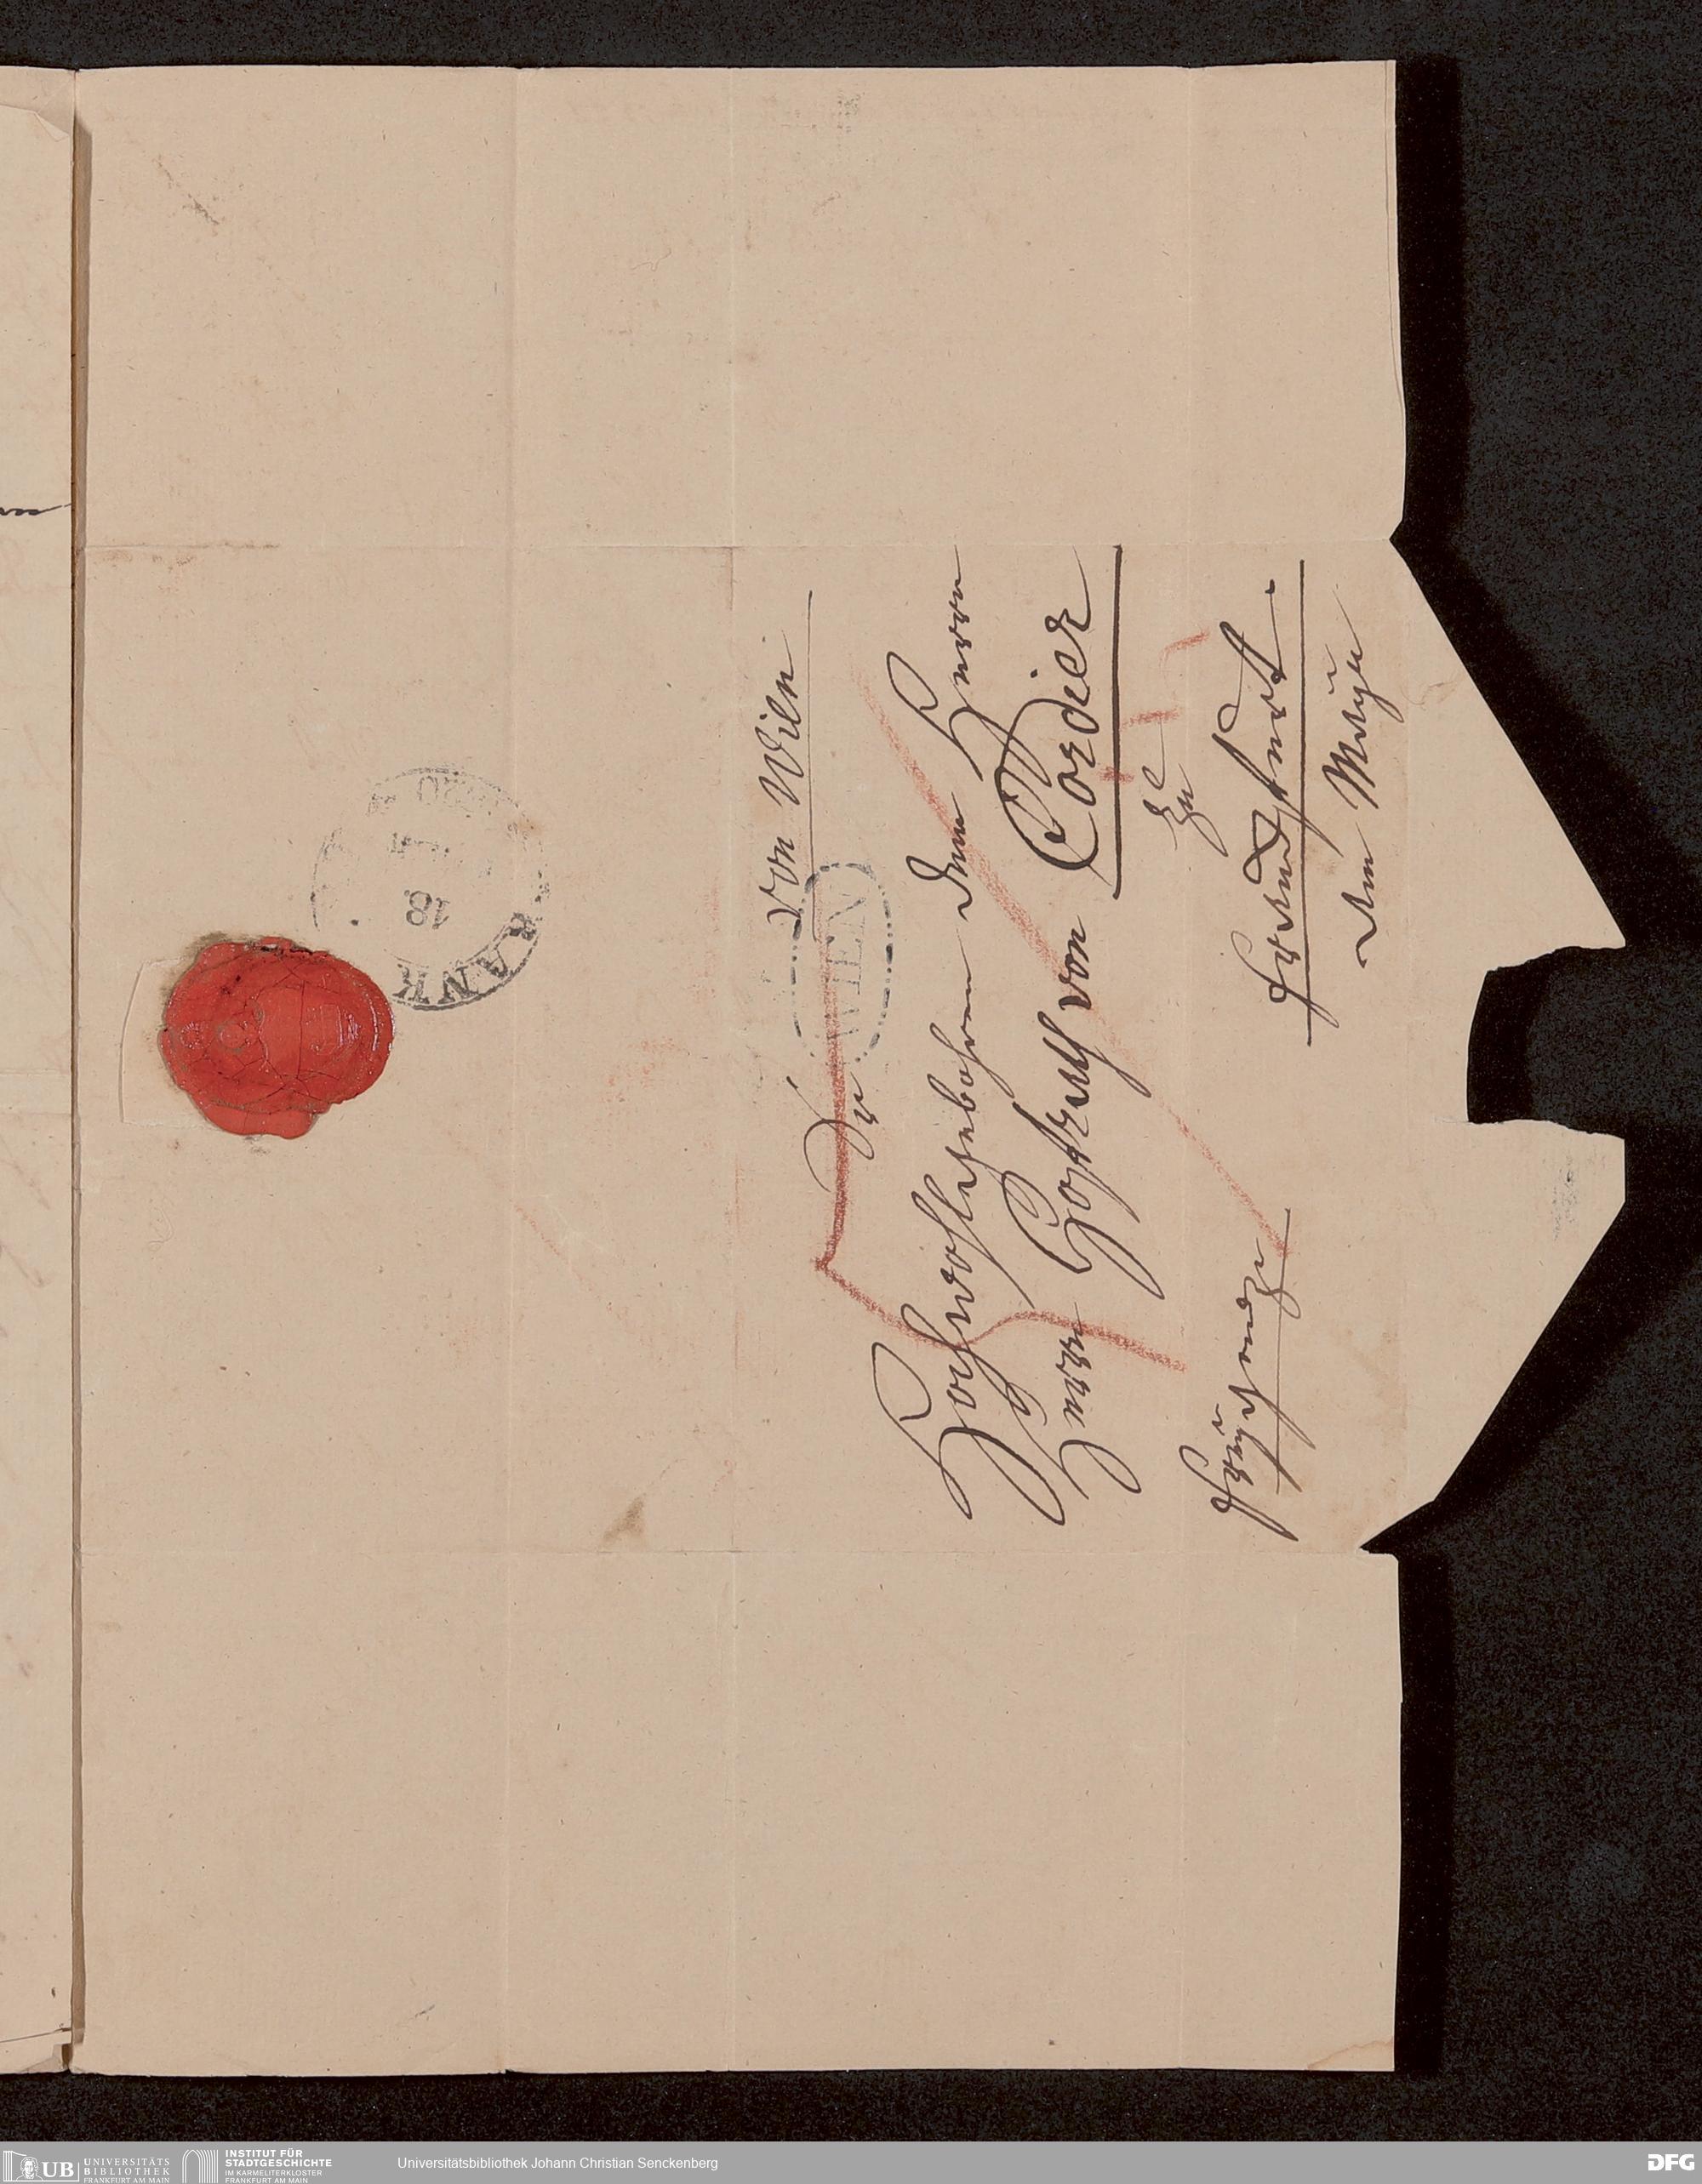 von Wien
WIEN
Sr
Hochwohlgebohren dem Herrn
Herrn Hofrath von Cordier
zu
Frankfurt.
am Mayn
FRANK
18
UNIVERSITÄTS
BIBLIOTHEK
FRANKFURT AM MAIN
INSTITUT FÜR
STADTGESCHICHTE
IM KARMELITERKLOSTER
FRANKFURT AM MAIN
Universitätsbibliothek Johann Christian Senckenberg
DFG